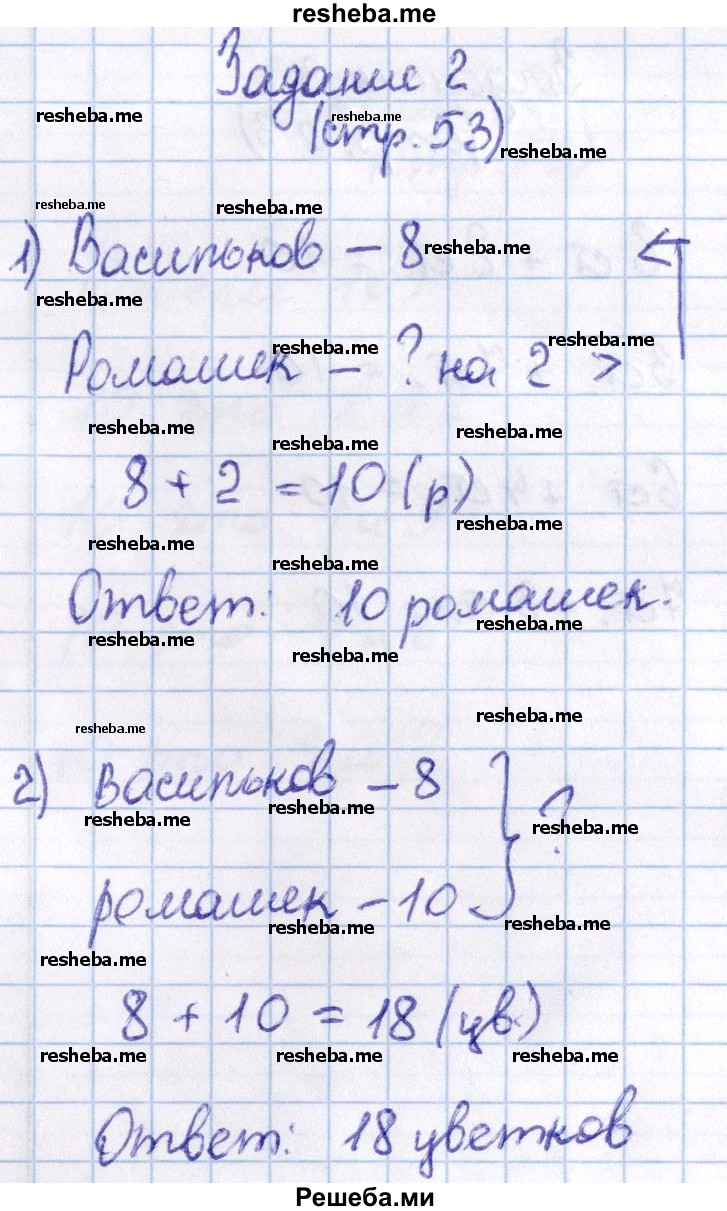 resheba.me
Задание 2
resheba.me resheba.me
(стр. 53) resheba.me
resheba.me resheba.me
1) Васильков – 8 resheba.me
resheba.me
resheba.me resheba.me
Ромашек – ? на 2 >
resheba.me resheba.me resheba.me
8 + 2 = 10 (р)
resheba.me
resheba.me resheba.me
Ответ: 10 ромашек.
resheba.me resheba.me
resheba.me
resheba.me resheba.me
2) Васильков – 8
resheba.me resheba.me } ? resheba.me
ромашек – 10
resheba.me resheba.me
resheba.me
8 + 10 = 18 (цв.)
resheba.me resheba.me resheba.me
Ответ: 18 цветков
Решеба.ми